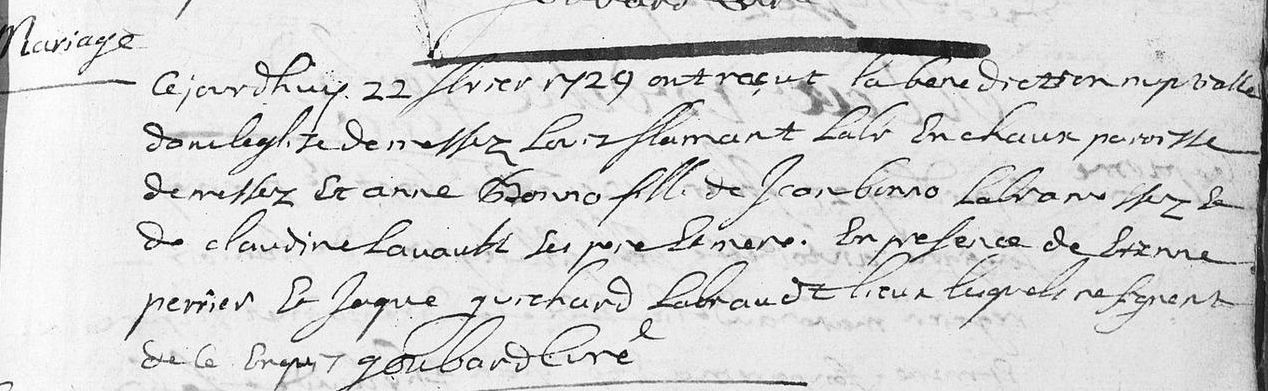 Mariage
Cejourdhuy 22 fevrier 1729 ont reçut la benediction nuptialle
dans leglise de messez Louis flamant Labr En chaux paroisse
de messez Et anne Bonno fille de Jean bonno Labr a messez Et
de claudine Lavault ses pere Et mere. En presence de Etienne
perrier Et Jaque guichard Labr audt lieux lesquels ne signent
de ce Enquis goubard Curé